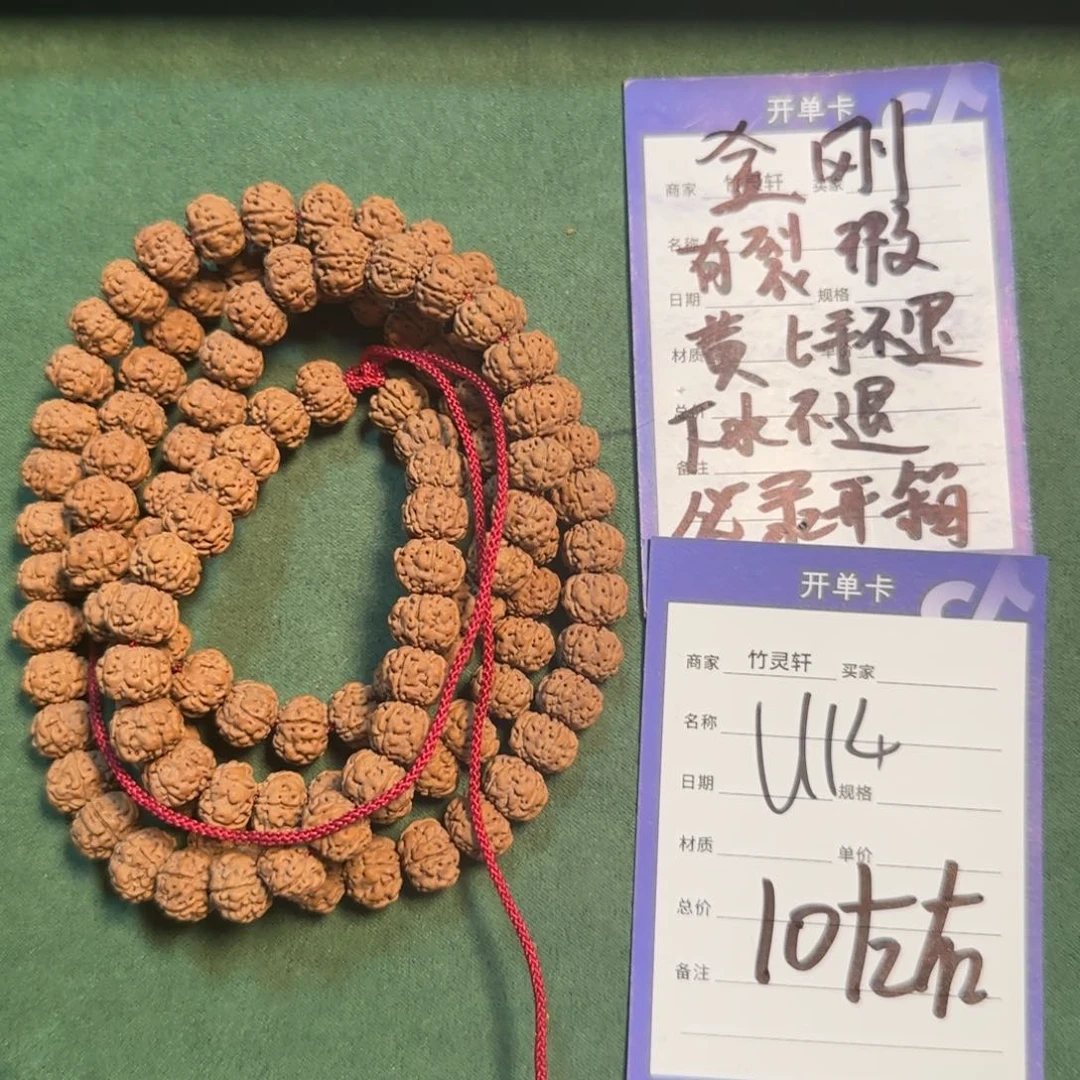 开单卡
金刚
商家 竹灵轩 买家
有裂 報
日期 规格
黄 上手不退
材质
下水不退
备注
必录开箱
开单卡
商家 竹灵轩 买家
名称 U14
日期 规格
材质 单价
总价
10左右
备注